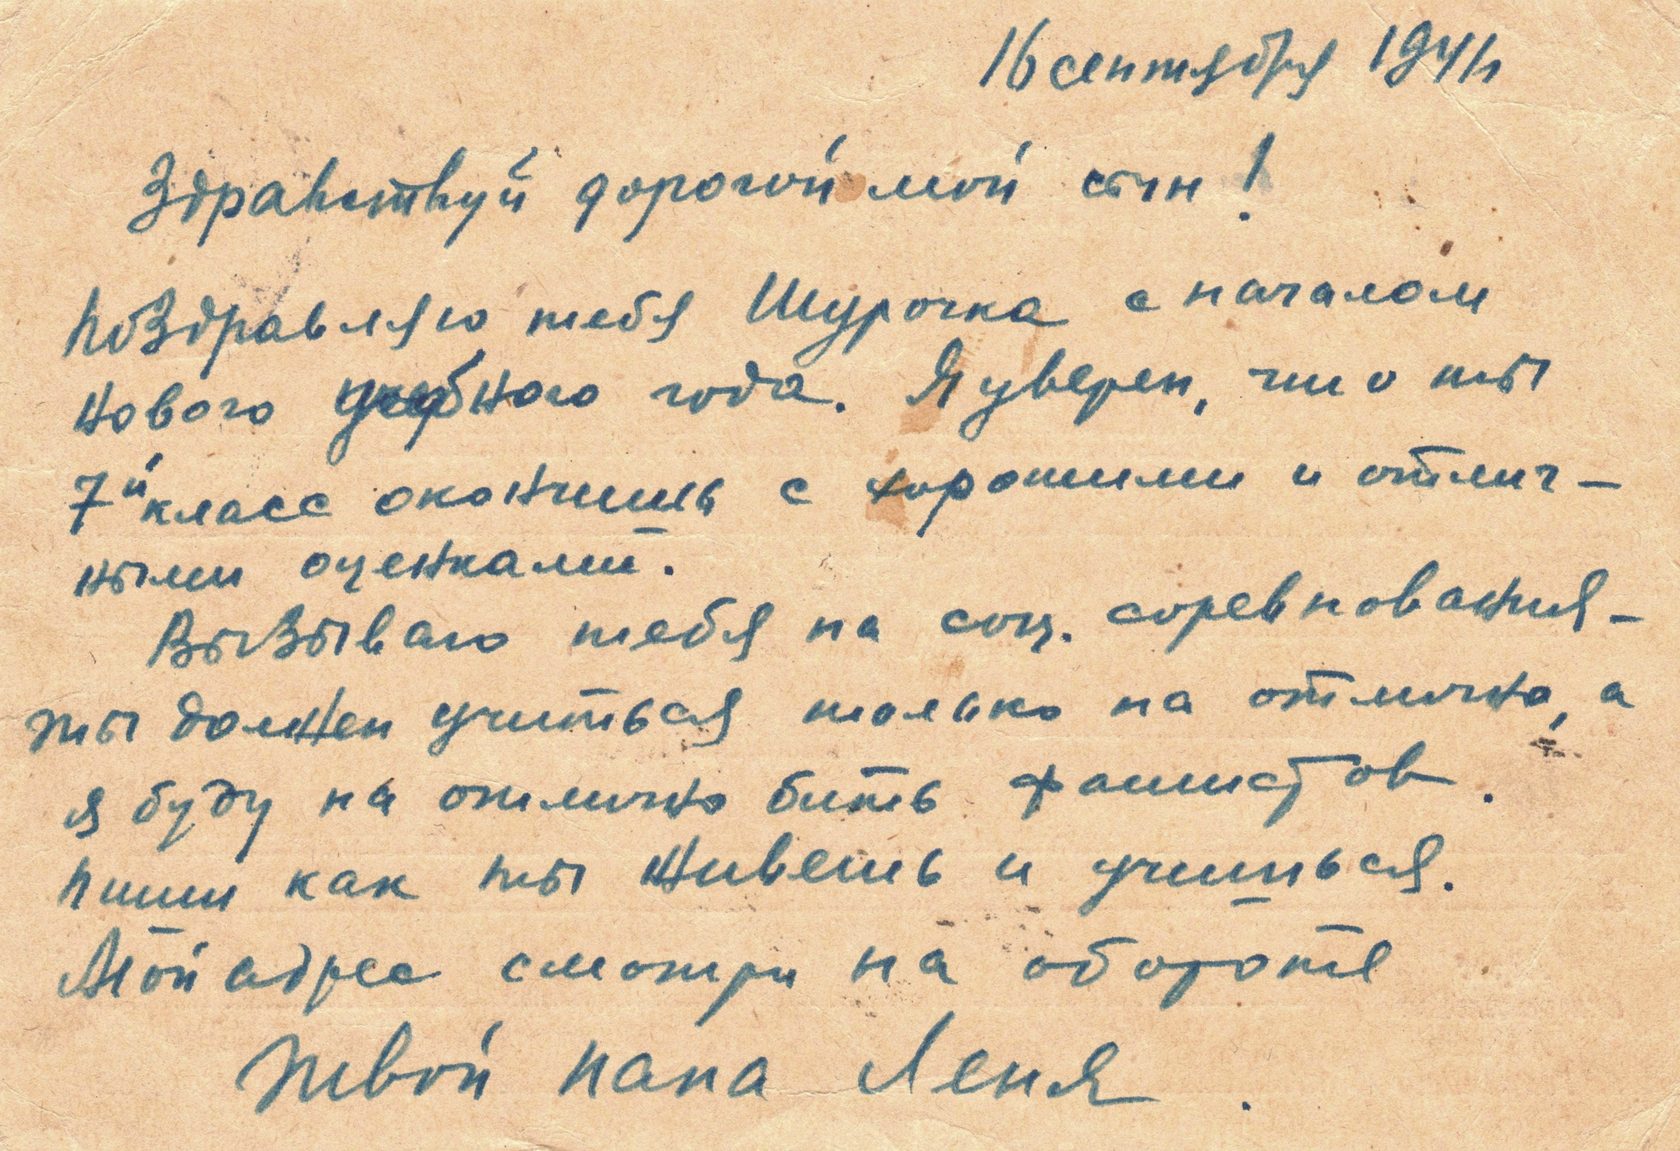 16 сентября 1941г
Здравствуй дорогой мой сын!
Поздравляю тебя Шурочка с началом
нового учебного года. Я уверен, что ты
7й класс окончишь с хорошими и отлич-
ными оценками.
Вызываю тебя на соц. соревнования-
ты должен учиться только на отлично, а
я буду на отлично бить фашистов.
Пиши как ты живешь и учишься.
Мой адрес смотри на обороте
Твой папа Леня.